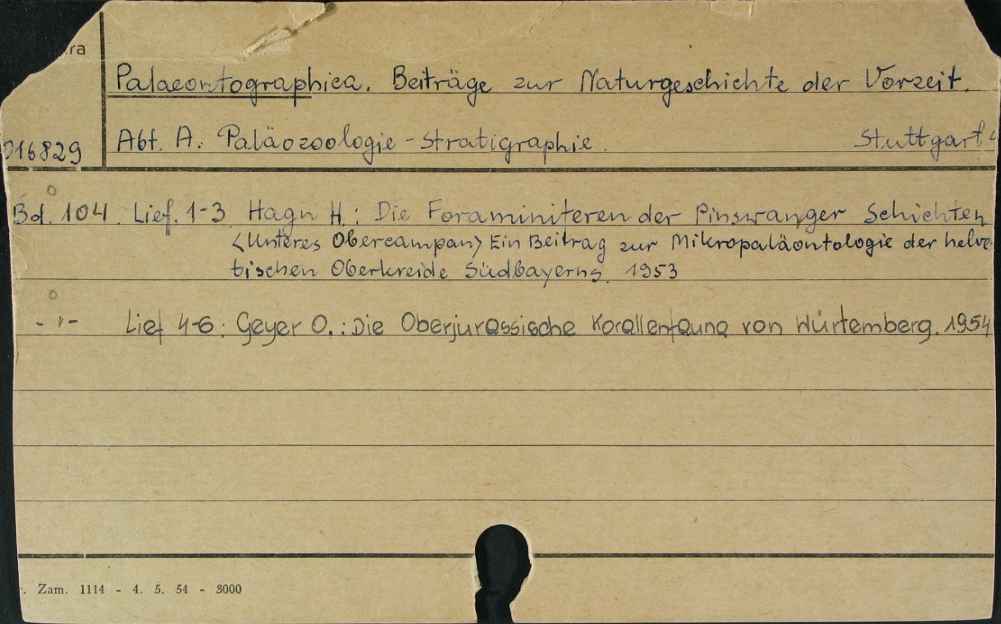 ra
Palaeontographica. Beiträge zur Naturgeschichte der Vorzeit.
016829 Abt. A. Paläozoologie - Stratigraphie. Stuttgart
Bd. 104. Lief. 1-3 Hagn H.: Die Foraminiferen der Pinswanger Schichten
<Unteres Obercampan> Ein Beitrag zur Mikropaläontologie der helve-
tischen Oberkreide Südbayerns. 1953
-"- Lief 4-6: Geyer O.: Die Oberjurassische Korallenfauna von Würtemberg. 1954
Zam. 1114 - 4. 5. 54 - 3000